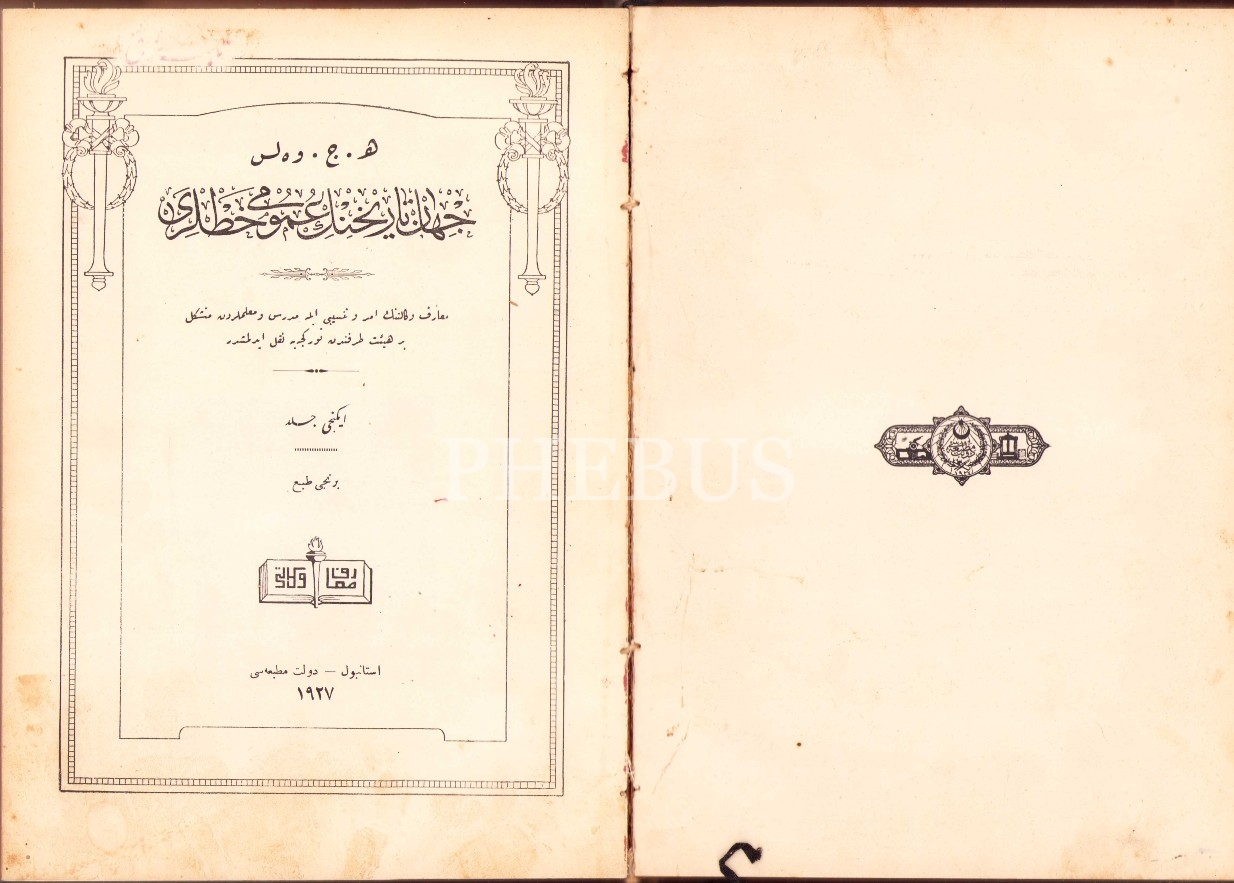 ه . ج . وه‌لس
جهان تاریخنك عمومی خطلری
معارف وكالتنك امر و تنسیبی ایله مدرس و معلملردن متشكل
بر هیئت طرفندن توركجه‌یه نقل ایدلمشدر
ایكنجی جلد
برنجی طبع
معارف وكالتی
استانبول — دولت مطبعه‌سی
۱۹۲۷
PHEBUS